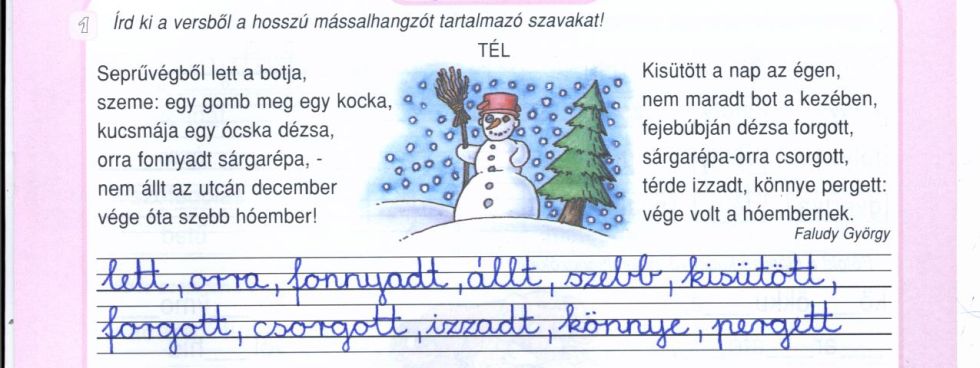 1 Írd ki a versből a hosszú mássalhangzót tartalmazó szavakat!
TÉL
Seprűvégből lett a botja,
szeme: egy gomb meg egy kocka,
kucsmája egy ócska dézsa,
orra fonnyadt sárgarépa, -
nem állt az utcán december
vége óta szebb hóember!
Kisütött a nap az égen,
nem maradt bot a kezében,
fejebúbján dézsa forgott,
sárgarépa-orra csorgott,
térde izzadt, könnye pergett:
vége volt a hóembernek.
Faludy György
lett, orra, fonnyadt, állt, szebb, kisütött,
forgott, csorgott, izzadt, könnye, pergett